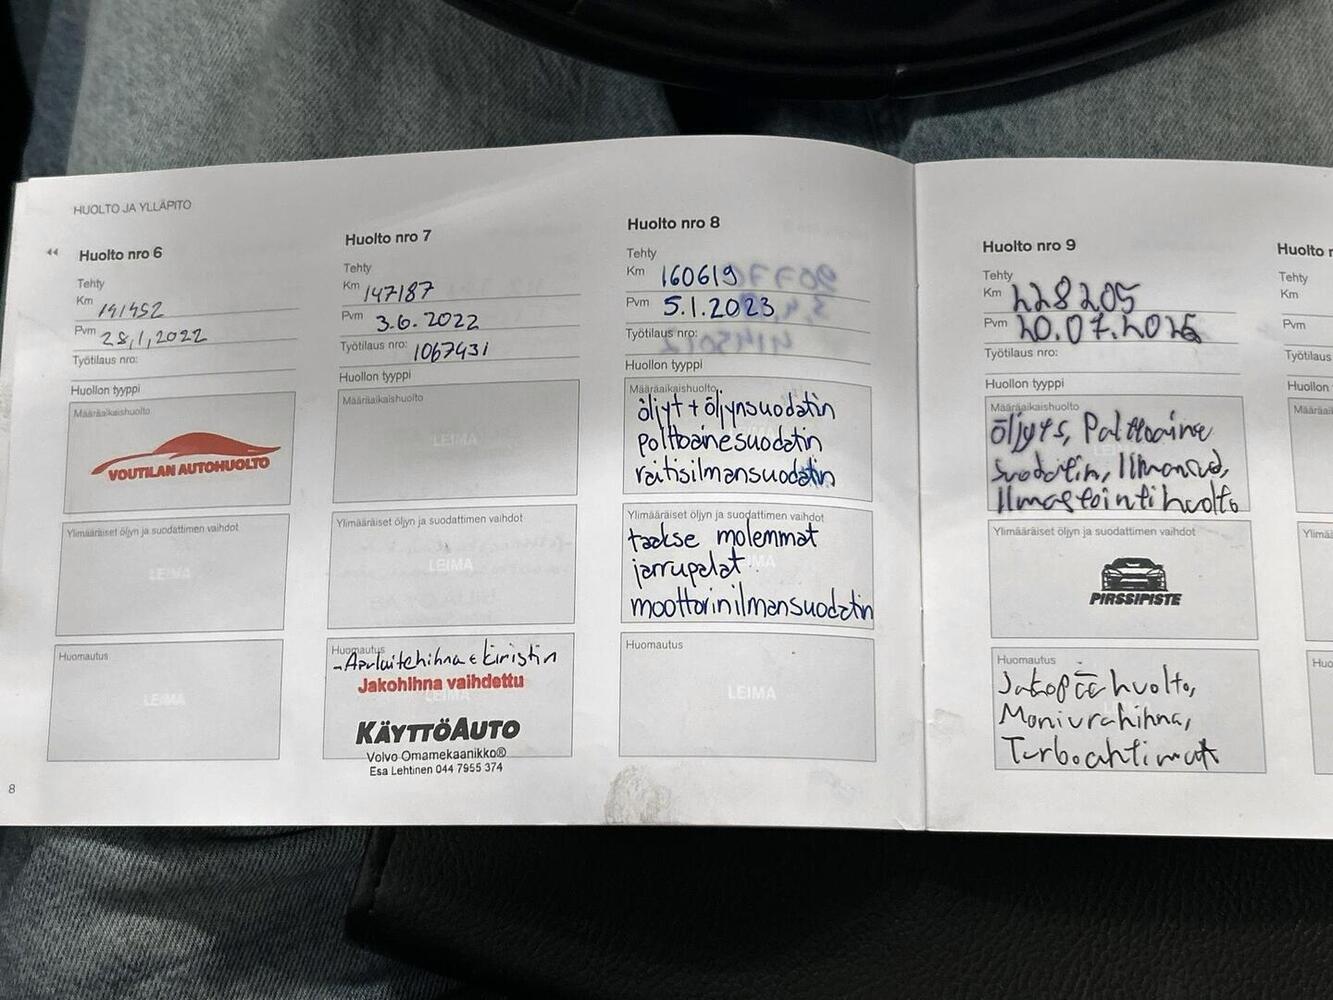 HUOLTO JA YLLÄPITO
Huolto nro 6
Tehty
Km 141452
Pvm 28,1,2022
Työtilaus nro:
Huollon tyyppi
Määräaikaishuolto
VOUTILAN AUTOHUOLTO
Ylimääräiset öljyn ja suodattimen vaihdot
LEIMA
Huomautus
LEIMA
8
Huolto nro 7
Tehty
Km 147187
Pvm 3.6.2022
Työtilaus nro: 1067431
Huollon tyyppi
Määräaikaishuolto
LEIMA
Ylimääräiset öljyn ja suodattimen vaihdot
LEIMA
Huomautus
-Apulaitehihna & kiristin
Jakohihna vaihdettu
KÄYTTÖAUTO
Volvo Omamekaanikko®
Esa Lehtinen 044 7955 374
Huolto nro 8
Tehty
Km 160619
Pvm 5.1.2023
Työtilaus nro:
Huollon tyyppi
Määräaikaishuolto
öljyt + öljynsuodatin
polttoainesuodatin
raitisilmansuodatin
Ylimääräiset öljyn ja suodattimen vaihdot
taakse molemmat
jarrupalat
moottorinilmansuodatin
Huomautus
LEIMA
Huolto nro 9
Tehty
Km 228205
Pvm 20.07.2025
Työtilaus nro:
Huollon tyyppi
Määräaikaishuolto
öljyts, Polttoaine
suodatin, Ilmansud,
Ilmastointihuolto
Ylimääräiset öljyn ja suodattimen vaihdot
PIRSSIPISTE
Huomautus
Jakopäähuolto,
Moniurahihna,
Turboahtimat
Huolto
Tehty
Km
Pvm
Työtilaus
Huollon